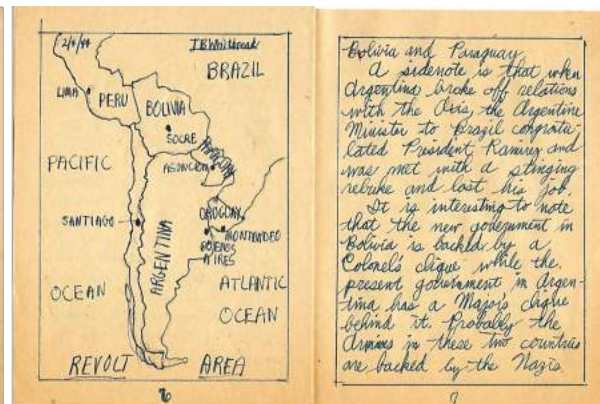 2/4/44
J B Whitbread
BRAZIL
LIMA
PERU
BOLIVIA
SOCRE
PARAGUAY
ASUNCION
PACIFIC
URUGUAY
SANTIAGO
MONTEVIDEO
BUENOS
AIRES
ARGENTINA
ATLANTIC
OCEAN
OCEAN
REVOLT AREA
6
Bolivia and Paraguay
A sidenote is that when
Argentina broke off relations
with the Axis, the Argentine
Minister to Brazil congratu-
lated President Ramirez and
was met with a stinging
rebuke and lost his job.
It is interesting to note
that the new government in
Bolivia is backed by a
Colonel's clique while the
present government in Argen-
tina has a Major's clique
behind it. Probably the
Armies in these two countries
are backed by the Nazis.
7